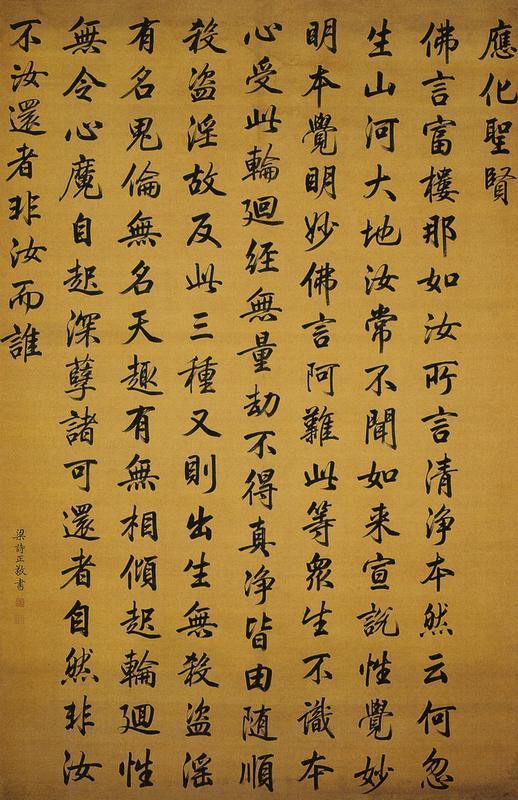 應化聖賢
佛言富樓那如汝所言清淨本然云何忽
生山河大地汝常不聞如来宣說性覺妙
明本覺明妙佛言阿難此等眾生不識本
心受此輪廻經無量劫不得真淨皆由随順
殺盜淫故反此三種又則出生無殺盜淫
有名鬼倫無名天趣有無相傾起輪廻性
無令心魔自起深孽諸可還者自然非汝
不汝還者非汝而誰
梁詩正敬書